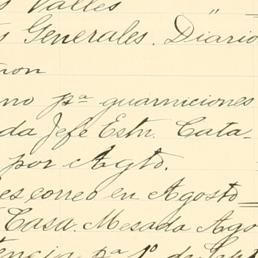 s Valles "
s Generales. Diario
non
no pª guarniciones
da Jefe Estn. Cata-
por Agto.
es correo en Agosto
Casa. Mesada Ago
tencia pª 1º de Sept